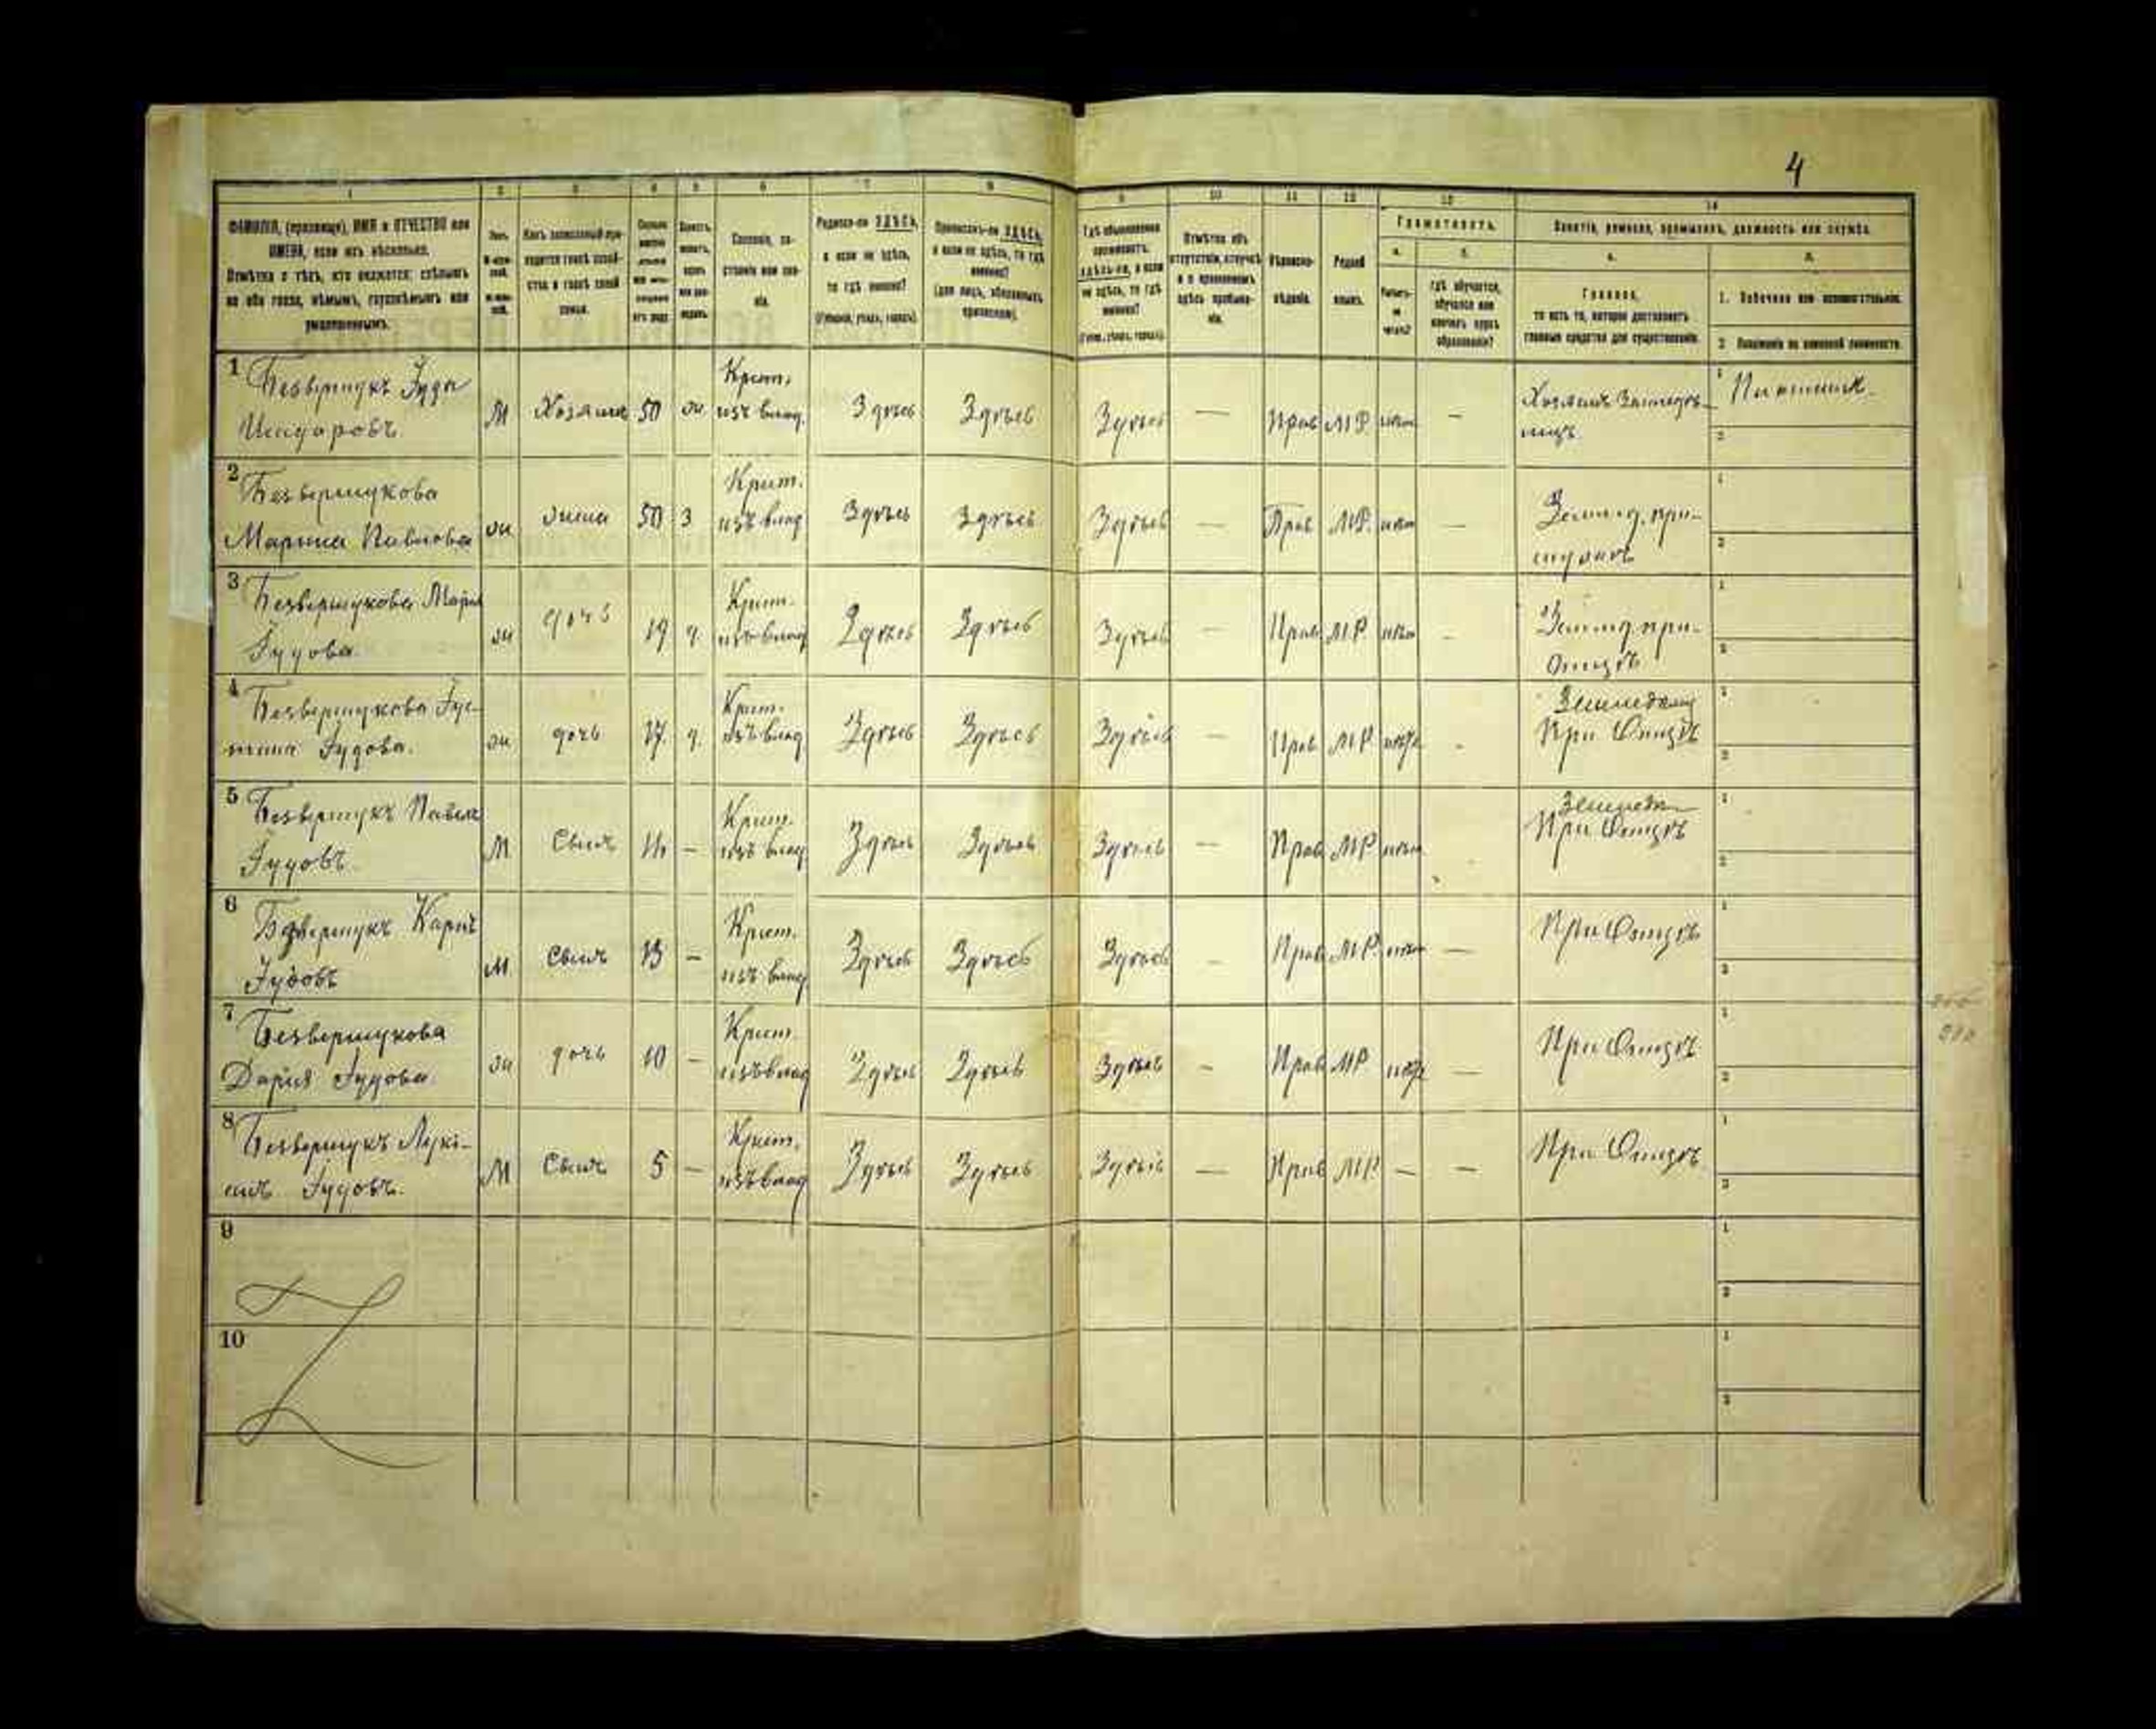 4
1 2 3 4 5 6 7 8 9 10 11 12 13 14
ФАМИЛІЯ, (прозвище), ИМЯ и ОТЧЕСТВО или
ИМЕНА, если ихъ нѣсколько.
Отмѣтка о тѣхъ, кто окажется: слѣпымъ
на оба глаза, нѣмымъ, глухонѣмымъ или
умалишеннымъ.
Родился-ли ЗДѢСЬ,
а если не здѣсь,
то гдѣ именно?
(Губернія, уѣздъ, городъ).
Приписанъ-ли ЗДѢСЬ,
а если не здѣсь, то гдѣ
именно?
(для лицъ, обязанныхъ
припискою).
Гдѣ обыкновенно
проживаетъ:
здѣсь-ли, а если
не здѣсь, то гдѣ
именно?
(Губ., уѣздъ, городъ).
Отмѣтка объ
отсутствіи, отлучкѣ
и о временномъ
здѣсь пребыва-
ніи.
Вѣроиспо-
вѣданіе.
Родной
языкъ.
Грамотность.
а. б.
Умѣетъ-
ли
читать?
гдѣ обучается,
обучался или
кончилъ курсъ
образованія?
Занятіе, ремесло, промыселъ, должность или служба.
Главное,
то есть то, которое доставляетъ
главныя средства для существованія.
1. Побочное или вспомогательное.
2. Положеніе по воинской повинности.
1 Безвершукъ Іуда
Исидоровъ М Хозяинъ 50 ж Крест. изъ влад. Здѣсь Здѣсь Здѣсь — Прав МР. нѣт — Хозяинъ Земледѣ-
лецъ 1 2
2 Безвершукова
Марина Павлова ж жена 50 3 Крест. изъ влад Здѣсь Здѣсь Здѣсь — Прав МР. нѣт — Землед. при- 1 2
3 Безвершукова Марія
Іудова ж дочь 19 д. Крест. изъ влад Здѣсь Здѣсь Здѣсь — Прав МР нѣт - Землед при-
Отцѣ 1 2
4 Безвершукова Іус-
тина Іудова. ж дочь 17 д. Крест. изъ влад Здѣсь Здѣсь Здѣсь — Прав МР нѣт - Земледѣлец
При Отцѣ 1 2
5 Безвершукъ Павелъ
Іудовъ. М Сынъ Крест. изъ влад Здѣсь Здѣсь Здѣсь — Прав МР нѣт Земледѣл
При Отцѣ 1 2
6 Безвершукъ Карпъ
Іудовъ М Сынъ 13 — Крест. изъ влад Здѣсь Здѣсь Здѣсь — Прав МР. нѣт — При Отцѣ 1 2
7 Безвершукова
Дарія Іудова. ж дочь 10 — Крест. изъ влад Здѣсь Здѣсь Здѣсь — Прав МР нѣт — При Отцѣ 1 2
8 Безвершукъ Лукі-
анъ Іудовъ. М Сынъ 5 — Крест. изъ влад Здѣсь Здѣсь Здѣсь — Прав МР. — — При Отцѣ 1 2
9 1 2
10 1 2